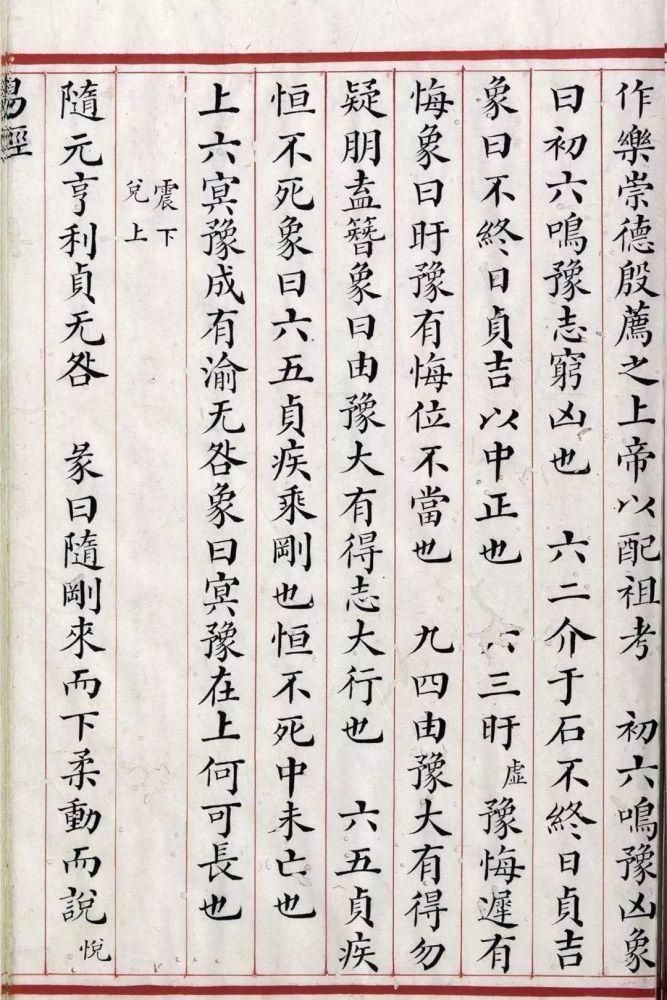 作樂崇德殷薦之上帝以配祖考　初六鳴豫凶象
曰初六鳴豫志窮凶也　六二介于石不終日貞吉
象曰不終日貞吉以中正也　六三盱虛豫悔遲有
悔象曰盱豫有悔位不當也　九四由豫大有得勿
疑朋盍簪象曰由豫大有得志大行也　六五貞疾
恒不死象曰六五貞疾乘剛也恒不死中未亡也
上六冥豫成有渝无咎象曰冥豫在上何可長也
震下
兌上
隨元亨利貞无咎　彖曰隨剛來而下柔動而說悅
易經